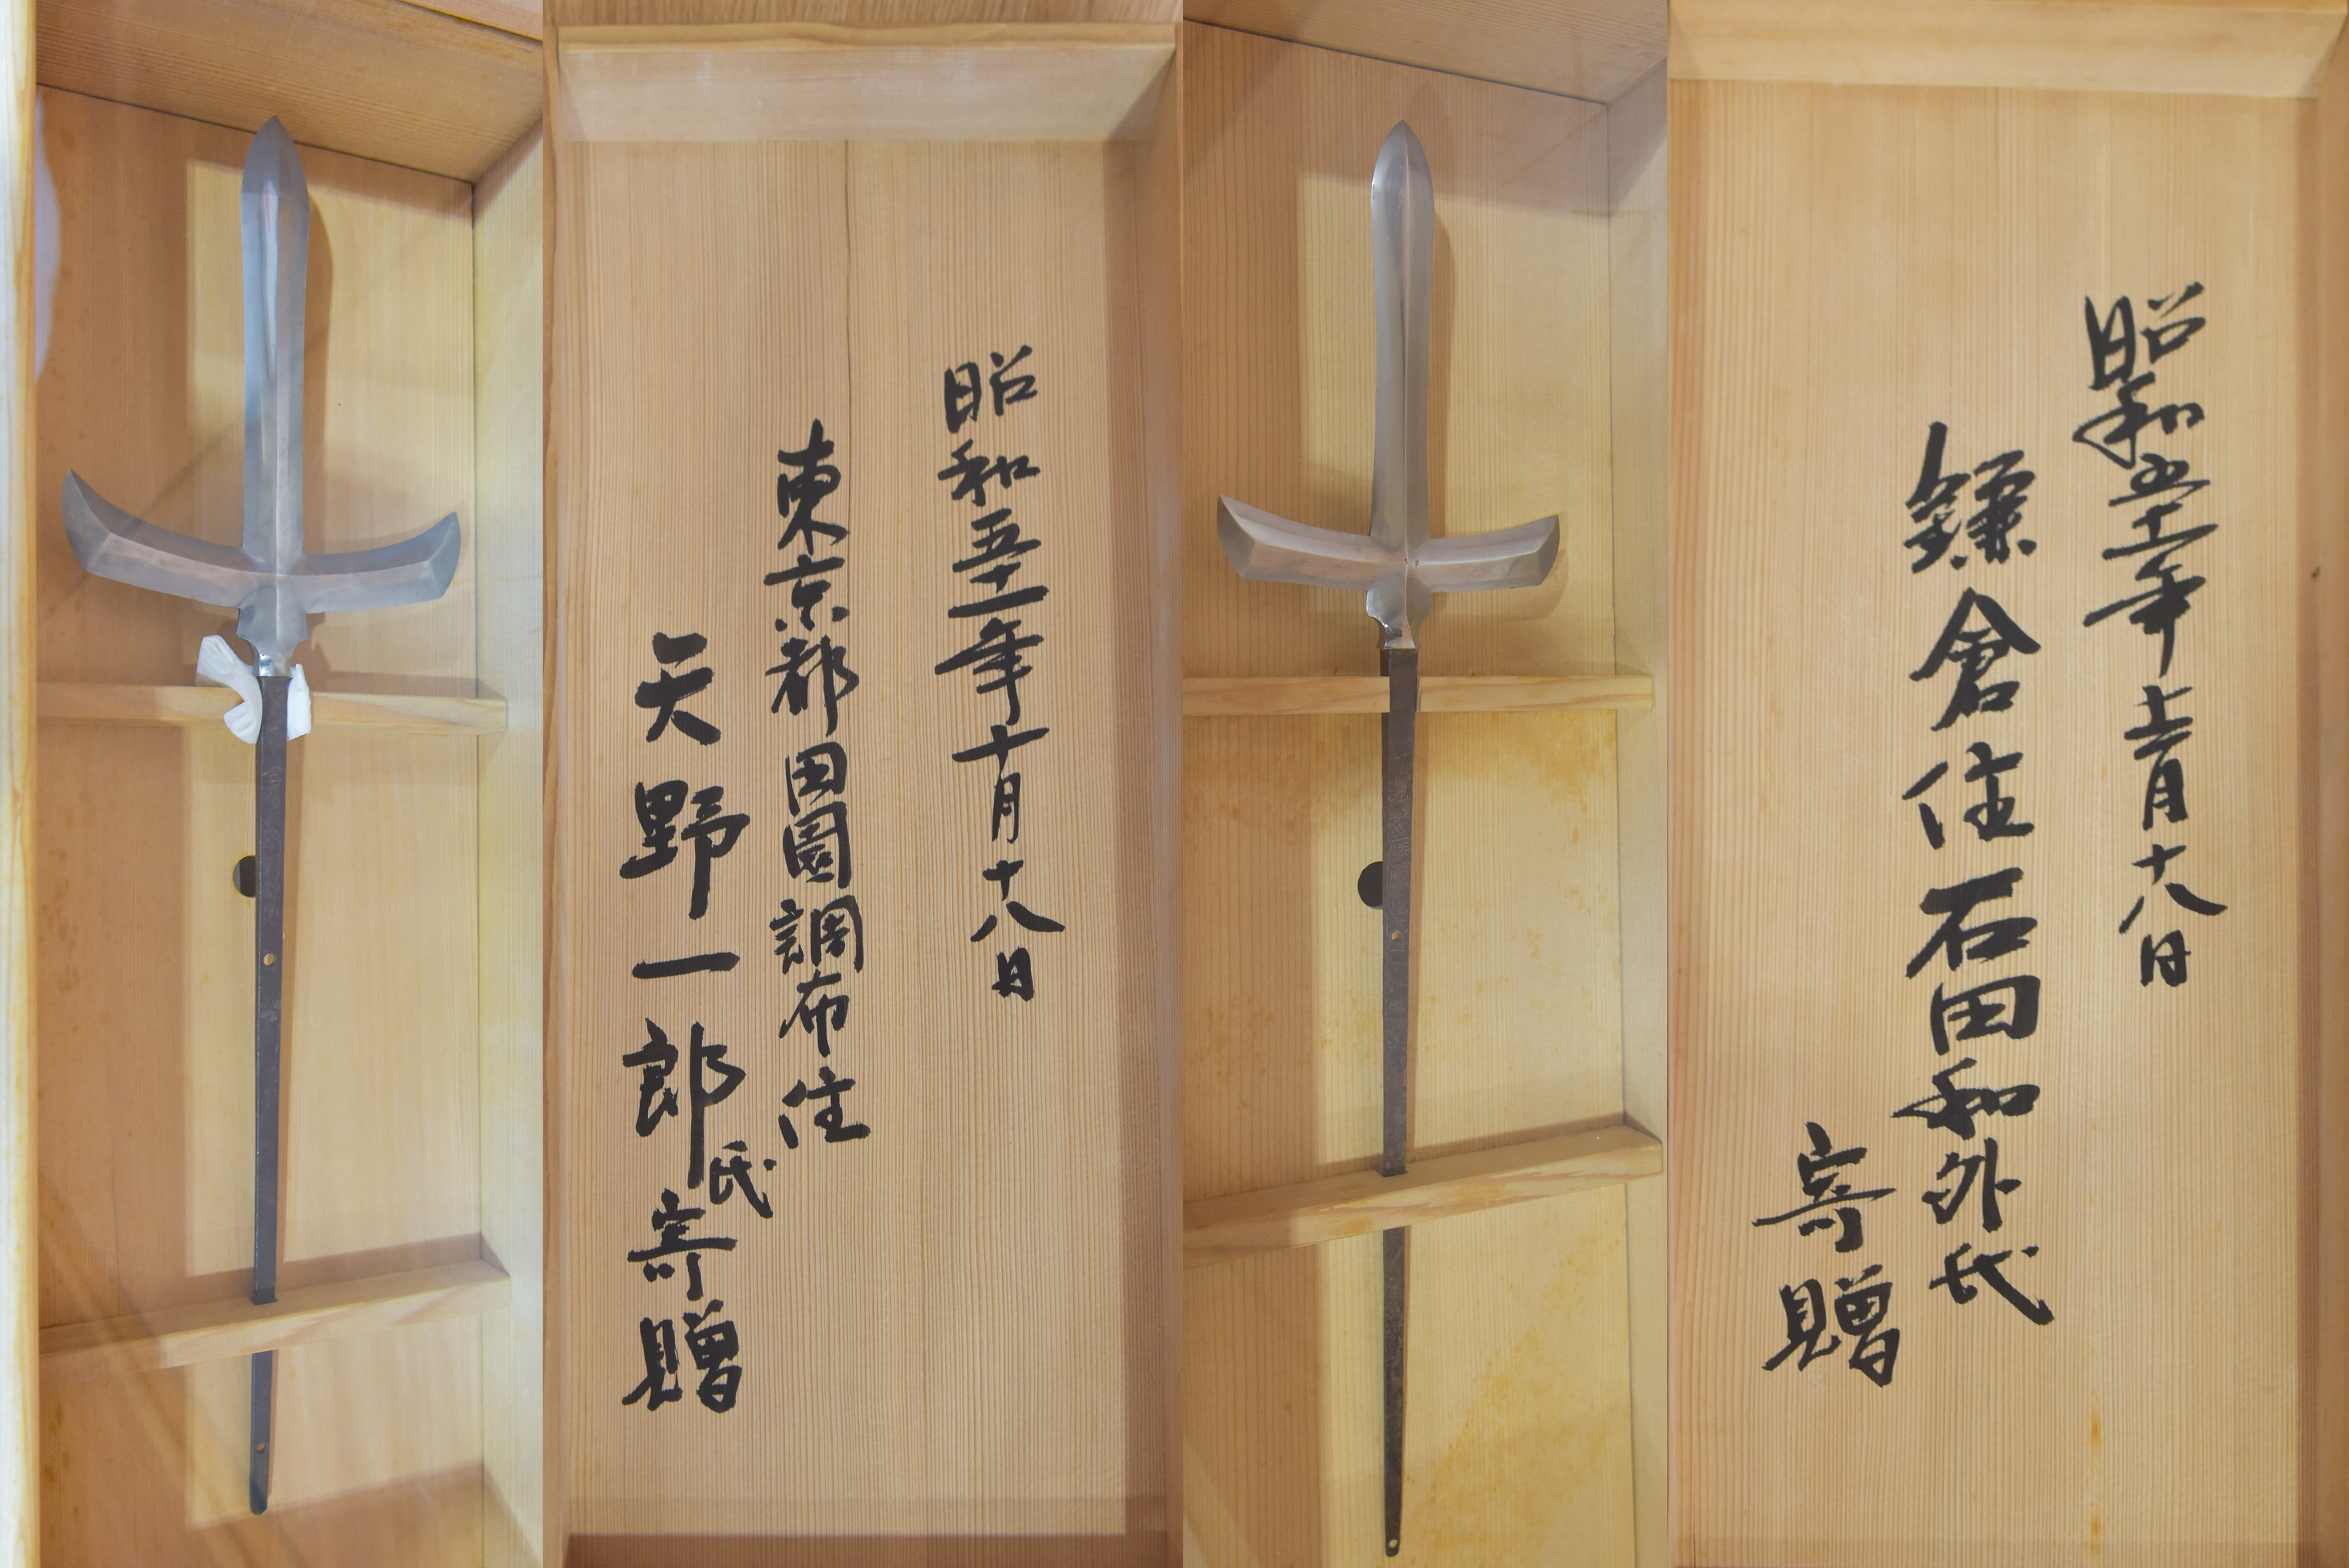 昭和五十一年十月十八日
東京都田園調布住
天野一郎氏寄贈
昭和五十一年 月十八日
鎌倉住石田和外氏
寄贈